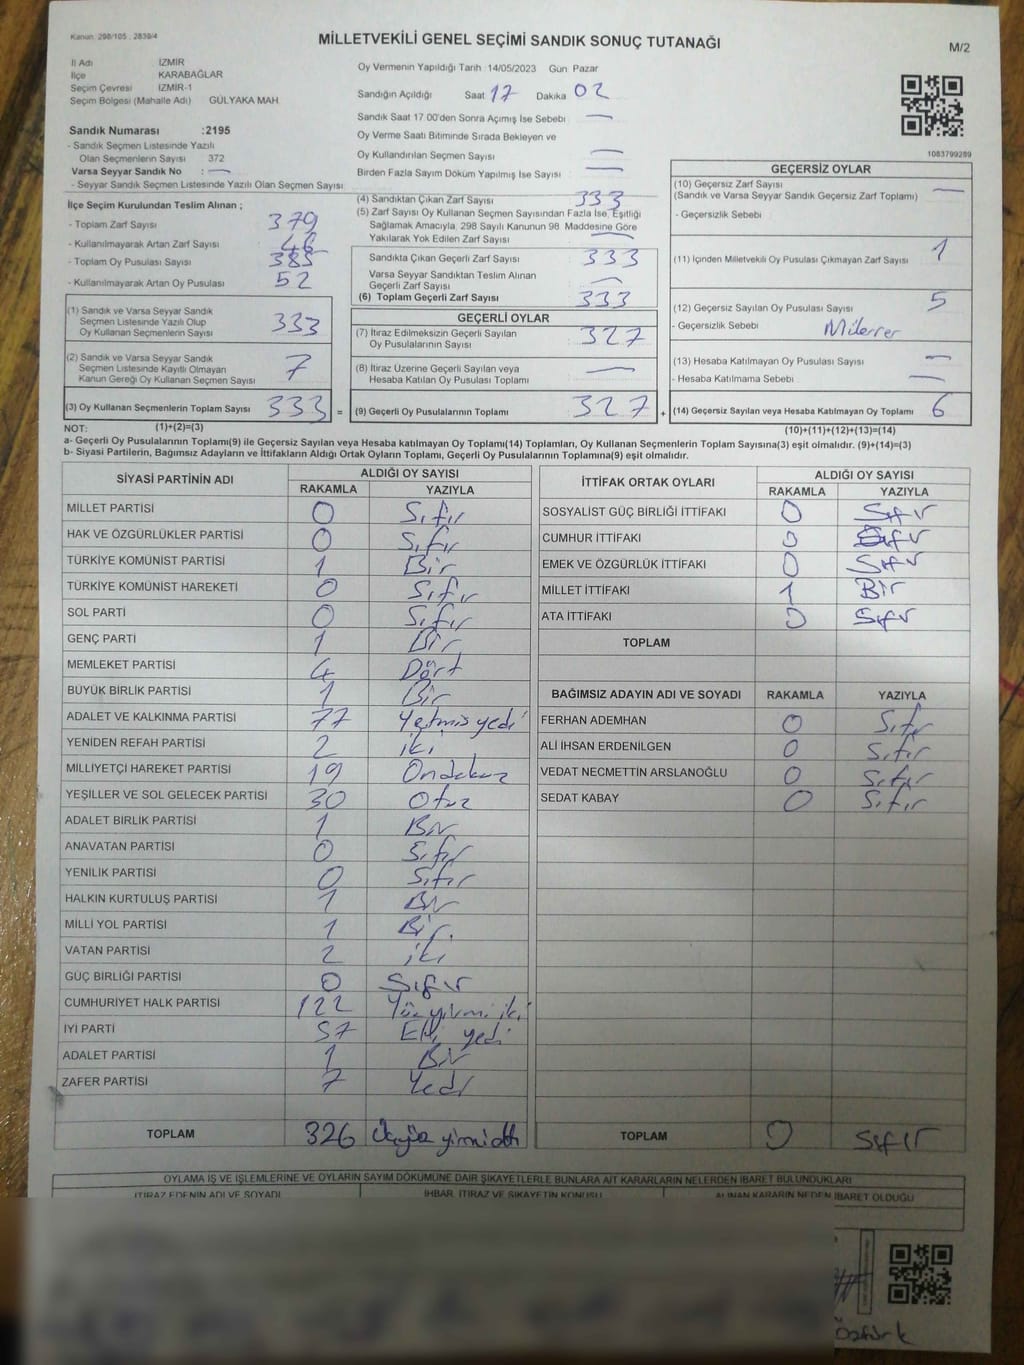 Kanun: 298/105 , 2839/4
MİLLETVEKİLİ GENEL SEÇİMİ SANDIK SONUÇ TUTANAĞI
M/2
İl Adı İZMİR
İlçe KARABAĞLAR
Seçim Çevresi İZMİR-1
Seçim Bölgesi (Mahalle Adı) GÜLYAKA MAH.
Sandık Numarası :2195
- Sandık Seçmen Listesinde Yazılı
Olan Seçmenlerin Sayısı 372
Varsa Seyyar Sandık No : —
- Seyyar Sandık Seçmen Listesinde Yazılı Olan Seçmen Sayısı:
Oy Vermenin Yapıldığı Tarih 14/05/2023 Gün Pazar
Sandığın Açıldığı Saat 17 Dakika 02
Sandık Saat 17.00'den Sonra Açmış İse Sebebi —
Oy Verme Saati Bitiminde Sırada Bekleyen ve
Oy Kullandırılan Seçmen Sayısı —
Birden Fazla Sayım Döküm Yapılmış İse Sayısı : —
1083799289
İlçe Seçim Kurulundan Teslim Alınan ;
- Toplam Zarf Sayısı 379
- Kullanılmayarak Artan Zarf Sayısı 46
- Toplam Oy Pusulası Sayısı 385
- Kullanılmayarak Artan Oy Pusulası 52
(1) Sandık ve Varsa Seyyar Sandık
Seçmen Listesinde Yazılı Olup
Oy Kullanan Seçmenlerin Sayısı 333
(2) Sandık ve Varsa Seyyar Sandık
Seçmen Listesinde Kayıtlı Olmayan
Kanun Gereği Oy Kullanan Seçmen Sayısı 7
(3) Oy Kullanan Seçmenlerin Toplam Sayısı 333 =
(4) Sandıktan Çıkan Zarf Sayısı 333
(5) Zarf Sayısı Oy Kullanan Seçmen Sayısından Fazla İse, Eşitliği
Sağlamak Amacıyla, 298 Sayılı Kanunun 98. Maddesine Göre
Yakılarak Yok Edilen Zarf Sayısı —
Sandıkta Çıkan Geçerli Zarf Sayısı 333
Varsa Seyyar Sandıktan Teslim Alınan
Geçerli Zarf Sayısı —
(6) Toplam Geçerli Zarf Sayısı 333
GEÇERLİ OYLAR
(7) İtiraz Edilmeksizin Geçerli Sayılan
Oy Pusulalarının Sayısı 327
(8) İtiraz Üzerine Geçerli Sayılan veya
Hesaba Katılan Oy Pusulası Toplamı —
(9) Geçerli Oy Pusulalarının Toplamı 327 +
GEÇERSİZ OYLAR
(10) Geçersiz Zarf Sayısı —
(Sandık ve Varsa Seyyar Sandık Geçersiz Zarf Toplamı)
- Geçersizlik Sebebi
(11) İçinden Milletvekili Oy Pusulası Çıkmayan Zarf Sayısı 1
(12) Geçersiz Sayılan Oy Pusulası Sayısı 5
- Geçersizlik Sebebi
(13) Hesaba Katılmayan Oy Pusulası Sayısı —
- Hesaba Katılmama Sebebi —
(14) Geçersiz Sayılan veya Hesaba Katılmayan Oy Toplamı 6
NOT: (1)+(2)=(3)
(10)+(11)+(12)+(13)=(14)
a- Geçerli Oy Pusulalarının Toplamı(9) ile Geçersiz Sayılan veya Hesaba katılmayan Oy Toplamı(14) Toplamları, Oy Kullanan Seçmenlerin Toplam Sayısına(3) eşit olmalıdır. (9)+(14)=(3)
b- Siyasi Partilerin, Bağımsız Adayların ve İttifakların Aldığı Ortak Oyların Toplamı, Geçerli Oy Pusulalarının Toplamına(9) eşit olmalıdır.
SİYASİ PARTİNİN ADI ALDIĞI OY SAYISI
RAKAMLA YAZIYLA
MİLLET PARTİSİ 0 Sıfır
HAK VE ÖZGÜRLÜKLER PARTİSİ 0 Sıfır
TÜRKİYE KOMÜNİST PARTİSİ 1 Bir
TÜRKİYE KOMÜNİST HAREKETİ 0 Sıfır
SOL PARTİ 0 Sıfır
GENÇ PARTİ 1 Bir
MEMLEKET PARTİSİ 4 Dört
BÜYÜK BİRLİK PARTİSİ 1 Bir
ADALET VE KALKINMA PARTİSİ 77 Yetmiş yedi
YENİDEN REFAH PARTİSİ 2 iki
MİLLİYETÇİ HAREKET PARTİSİ 19 Ondokuz
YEŞİLLER VE SOL GELECEK PARTİSİ 30 Otuz
ADALET BİRLİK PARTİSİ 1 Bir
ANAVATAN PARTİSİ 0 Sıfır
YENİLİK PARTİSİ 0 Sıfır
HALKIN KURTULUŞ PARTİSİ 1 Bir
MİLLİ YOL PARTİSİ 1 Bir.
VATAN PARTİSİ 2 iki
GÜÇ BİRLİĞİ PARTİSİ 0 Sıfır
CUMHURİYET HALK PARTİSİ 122 Yüz yirmi iki
İYİ PARTİ 57 Elli yedi
ADALET PARTİSİ 1 Bir
ZAFER PARTİSİ 7 Yedi
TOPLAM 326 Üçyüz yirmi altı
İTTİFAK ORTAK OYLARI ALDIĞI OY SAYISI
RAKAMLA YAZIYLA
SOSYALİST GÜÇ BİRLİĞİ İTTİFAKI 0 Sıfır
CUMHUR İTTİFAKI 0 Sıfır
EMEK VE ÖZGÜRLÜK İTTİFAKI 0 Sıfır
MİLLET İTTİFAKI 1 Bir
ATA İTTİFAKI 0 Sıfır
TOPLAM
BAĞIMSIZ ADAYIN ADI VE SOYADI RAKAMLA YAZIYLA
FERHAN ADEMHAN 0 Sıfır
ALİ İHSAN ERDENİLGEN 0 Sıfır
VEDAT NECMETTİN ARSLANOĞLU 0 Sıfır
SEDAT KABAY 0 Sıfır
TOPLAM 0 Sıfır
OYLAMA İŞ VE İŞLEMLERİNE VE OYLARIN SAYIM DÖKÜMÜNE DAİR ŞİKAYETLERLE BUNLARA AİT KARARLARIN NELERDEN İBARET BULUNDUKLARI
İTİRAZ EDENİN ADI VE SOYADI İHBAR, İTİRAZ VE ŞİKAYETİN KONUSU ALINAN KARARIN NEDEN İBARET OLDUĞU
Öztürk